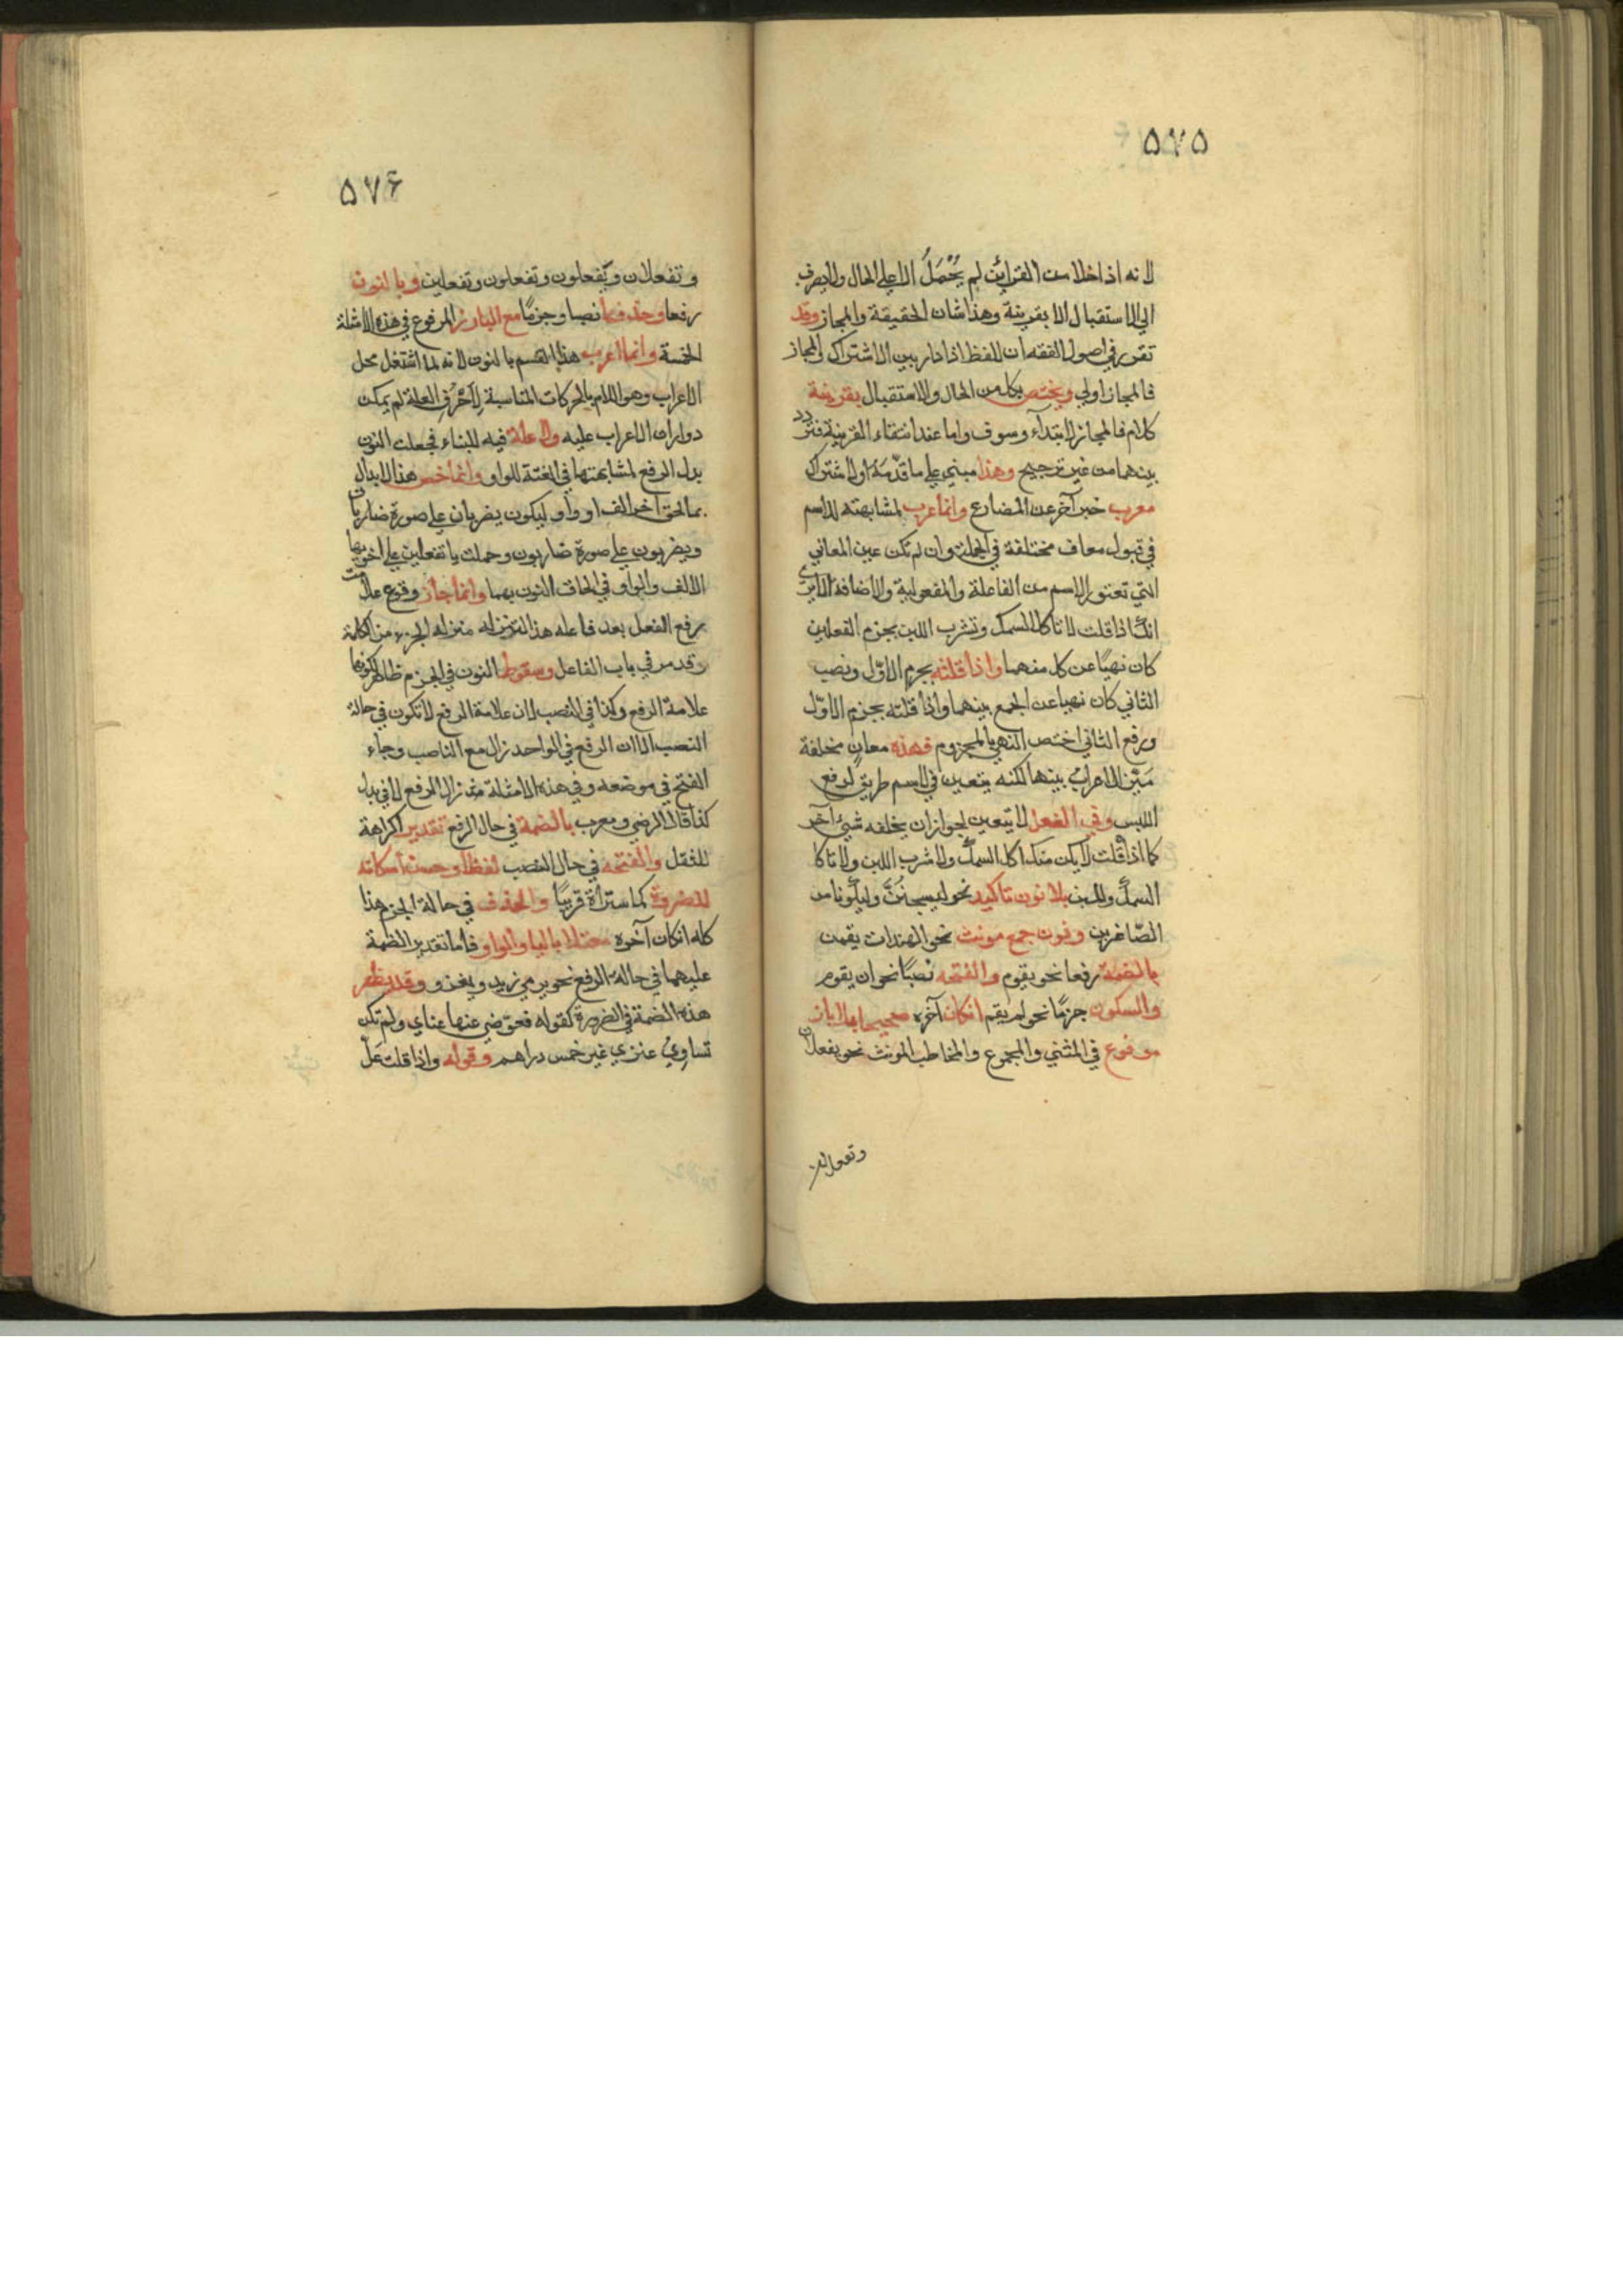 ٥٧٥
لانه اذا خلا من القرائن لم يُحْمَلُ الا على الحال ولا يصرف
الى الاستقبال الا بقرينة وهذا شان الحقيقة والمجاز وقد
تقرر في اصول الفقه ان اللفظ اذا دار بين الاشتراك والمجاز
فالمجاز اولى ويختص بكل من الحال والاستقبال بقرينة
كلام فالمجاز لابتداء وسوف واما عند انتفاء القرينة فتردد
بينهما من غير ترجيح وهذا مبني على ما قدّمه اولا اشتراك
معرب خبر آخر عن المضارع وانما عرب لمشابهته للاسم
في قبول معاف مختلفة في الجملة وان لم تكن عين المعاني
التي تعتور الاسم من الفاعلة والمفعولية والاضافة الا يرى
انك اذا قلت لا تاكل السمك وتشرب اللبن بجزم الفعلين
كان نهيًا عن كل منهما واذا قلته بجزم الاوّل ونصب
الثاني كان نهيا عن الجمع بينهما واذا قلته بجزم الاوّل
ورفع الثاني اختص النهي بالمجزوم فهذه معانٍ مختلفة
مَيَّز الاعرابُ بينها لكنه يتعين في الاسم طريق لرفع
اللبس وفي الفعل لا يتعين لجواز ان يخلفه شيئ آخر
كما اذا قلت لا يكن منك اكل السمك ولا شرب اللبن ولا تاكل
السمك واللبن بلا نون تاكيد نحو ليسجننّ وليكونا من
الصّاغرين ونون جمع مونث نحو الهندات يقمن
بالضمة رفعا نحو يقوم والفتحه نصبًا نحو ان يقوم
والسكون جزمًا نحو لم يقم انكان آخره صحيحا بها لا بارز
مرفوع في المثنى والمجموع والمخاطب المونث نحو يفعلان
وتفعلان
٥٧۶
وتفعلان ويفعلون وتفعلون وتفعلين وبالنون
رفعا وحذفها نصبا وجزمًا مع البارز المرفوع في هذه الامثلة
الخمسة وانما اعرب هذا القسم بالنون لانه لما اشتغل محل
الاعراب وهو اللام بالحركات المناسبة لِاَحْرُفِ العلة لم يمكن
دوران الاعراب عليه ولا علة فيه للبناء فجعلت النون
بدل الرفع لمشابهتها في الغنة للواو وانما خص هذا الابدال
بما لحق اخره الف او واو ليكون يضربان على صورة ضاربان
ويضربون على صورة ضاربون وحملت يا تفعلين على اخويها
الالف والواو في الحاق النون بهما وانما جاز وقوع علامت
رفع الفعل بعد فاعله هذا لتنزله منزله الجزء من الكلمة
وقد مر في باب الفاعل وسقوط النون في الجزم ظاهر لكونها
علامة الرفع وكذا في النصب لان علامة الرفع لا تكون في حالة
النصب الا ان الرفع في الواحد زال مع الناصب وجاء
الفتح في موضعه وفي هذه الامثلة زال الرفع لا في بدل
كذا قال الرضي ومعرب بالضمة في حال الرفع تقديرا كراهة
للثقل والفتحه في حال النصب لفظا وحسن اسكانه
للضرورة كما ستراه قريبًا والحذف في حالة الجزم هذا
كله انكان آخره معتلا باليا والواو فاما تقدير الضمة
عليهما في حالة الرفع نحو يرمي زيد ويغزو وقد يظهر
هذه الضمة في الضرورة كقوله فعوّضني عنها غناي ولم تكن
تساوِيُ عنزي غير خمس دراهم وقوله واذا قلت عَلّ